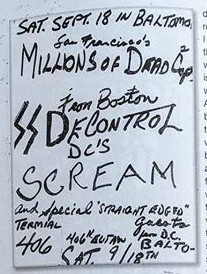 SAT. SEPT. 18 IN BALTOMO,
San Francisco's
MILLIONS OF DEAD COPS
From Boston
SS DECONTROL
DC'S
SCREAM
and special "STRAIGHT EDGED" Guests
TERMIAL from D.C.
406 406 N EUTAW BALTO-
SAT. 9/18TH